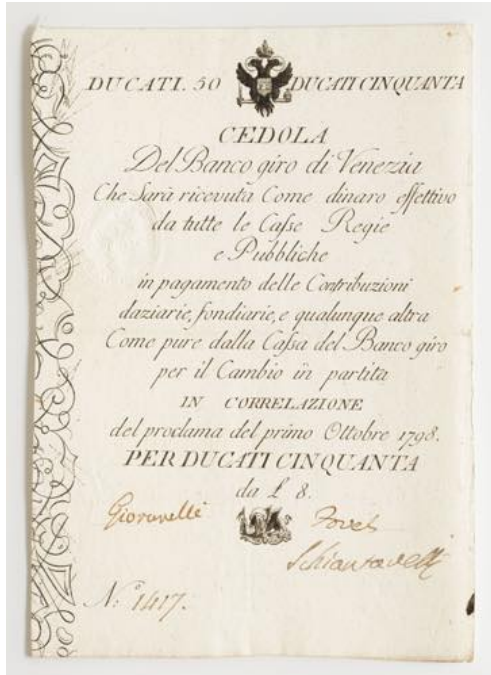 DUCATI. 50 DUCATI CINQUANTA
CEDOLA
Del Banco giro di Venezia
Che Sarà ricevuta Come dinaro effettivo
da tutte le Caſse Regie
e Pubbliche
in pagamento delle Contribuzioni
daziarie, fondiarie, e qualunque altra
Come pure dalla Caſsa del Banco giro
per il Cambio in partita
IN CORRELAZIONE
del proclama del primo Ottobre 1798.
PER DUCATI CINQUANTA
da £ 8.
N:º 1417.